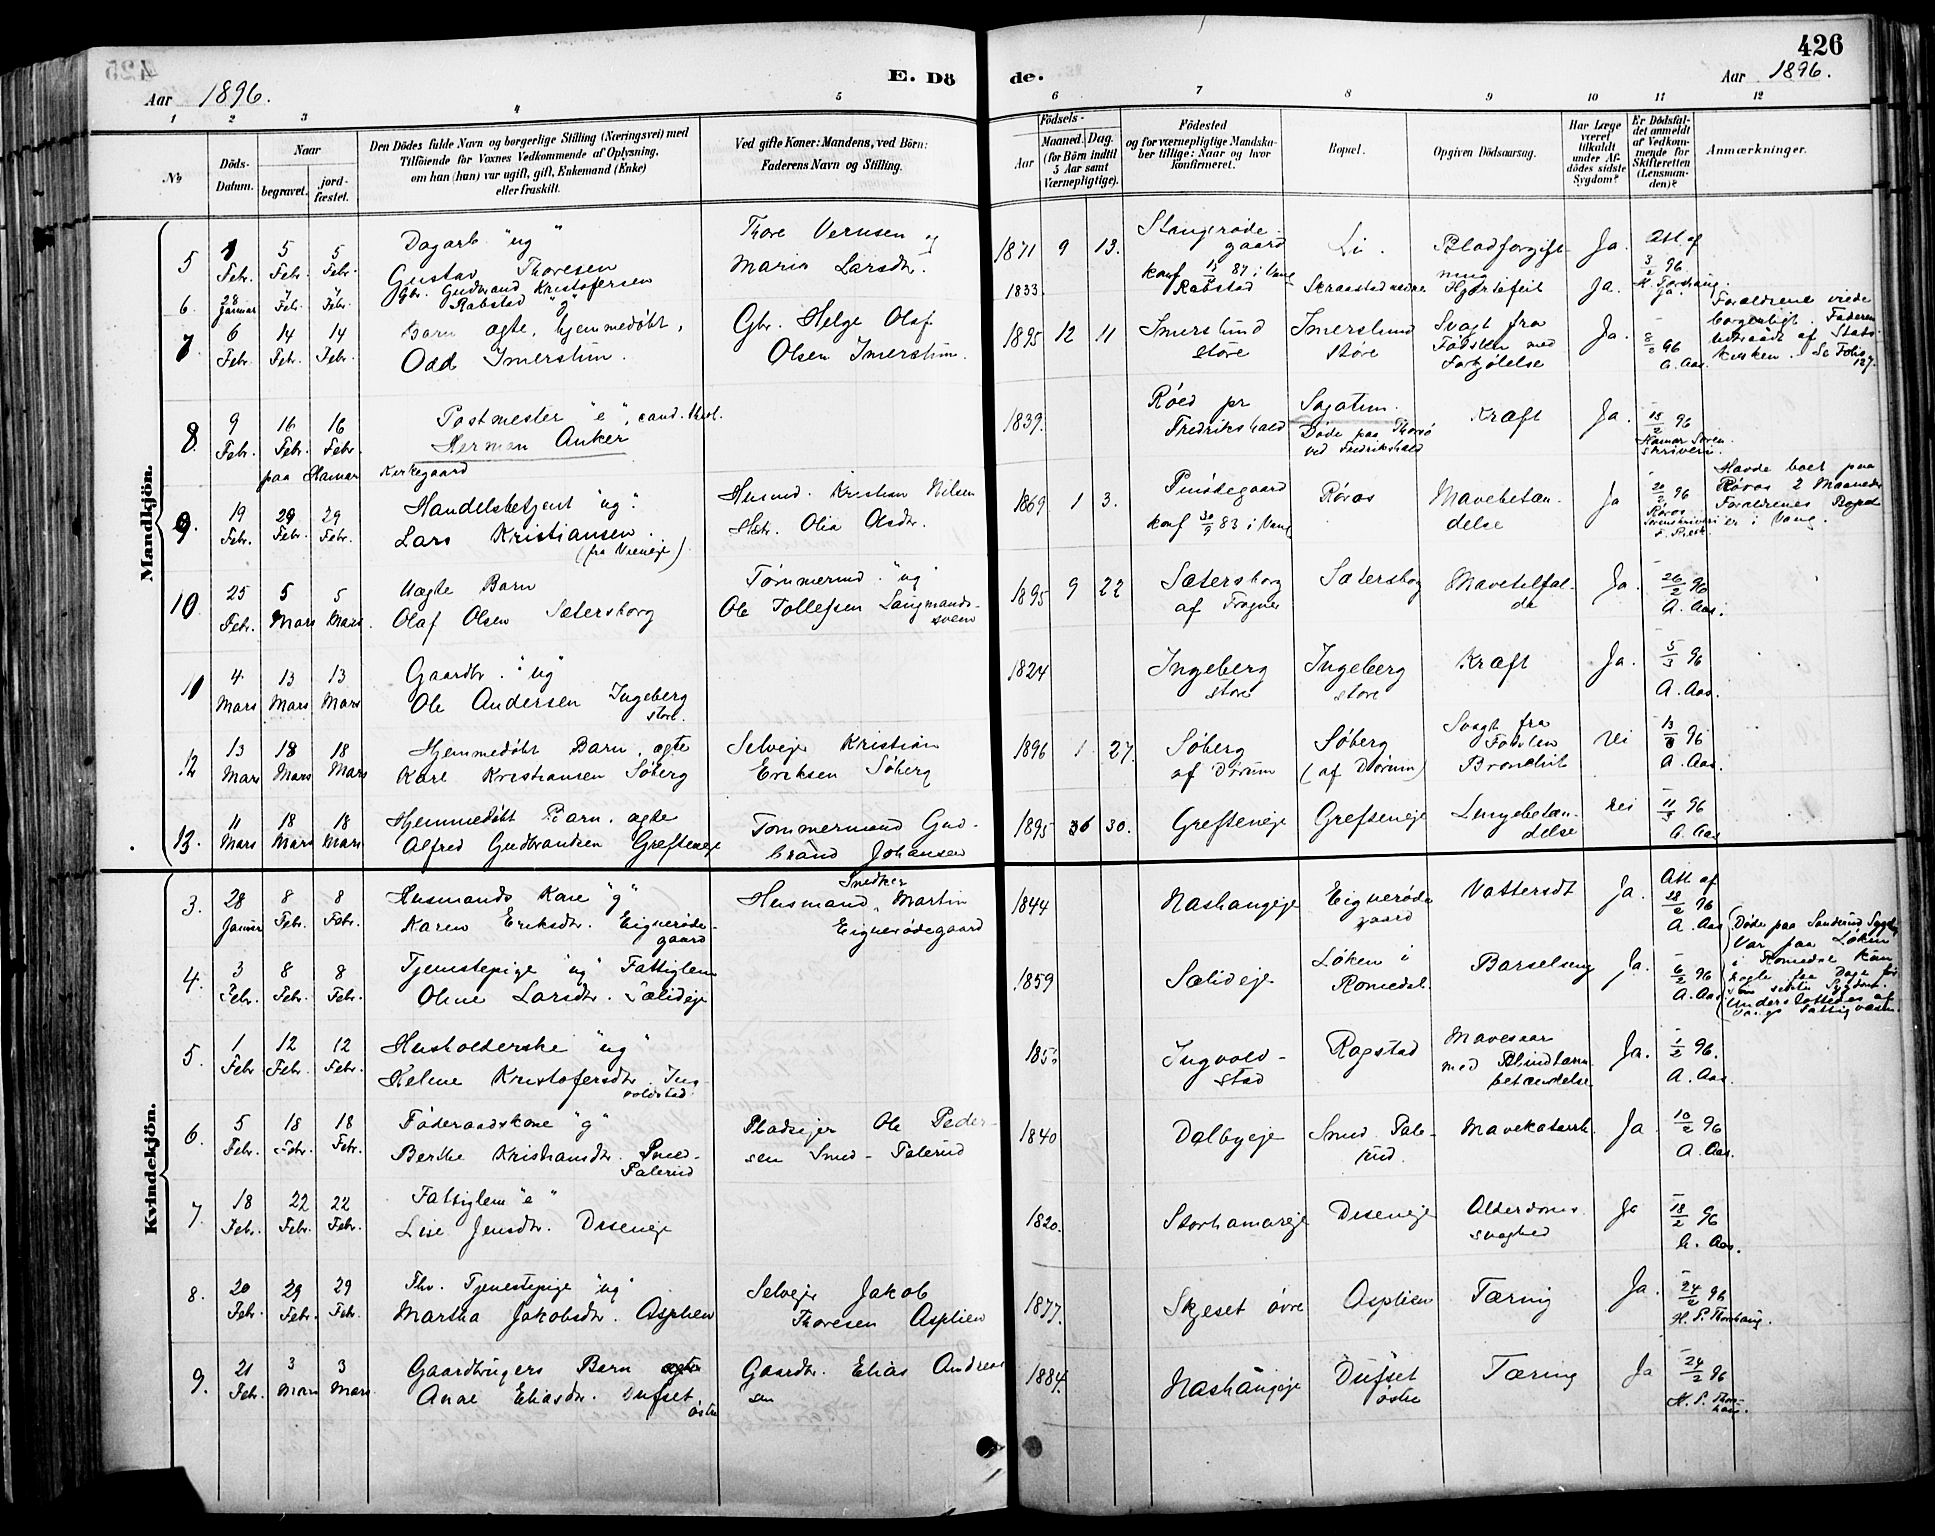 425
426
Aar 1896.
E. Dö
de.
Aar 1896.
1 2 3 4 5 6 7 8 9 10 11 12
No
Döds-
Datum.
Naar
begravet.
jord-
fæstet.
Den Dödes fulde Navn og borgerlige Stilling (Næringsvei) med
Tilföiende for Voxnes Vedkommende af Oplysning,
om han (hun) var ugift, gift, Enkemand (Enke)
eller fraskilt.
Ved gifte Koner: Mandens, ved Börn:
Faderens Navn og Stilling.
Födsels-
Aar
Maaned. Dag.
(for Börn indtil
5 Aar samt
Værnepligtige).
Födested
og for værnepligtige Mandska-
ber tillige: Naar og hvor
konfirmeret.
Bopæl.
Opgiven Dödsaarsag.
Har Læge
været
tilkaldt
under Af-
dödes sidste
Sygdom?
Er Dödsfal-
det anmeldt
af Vedkom-
mende for
Skifteretten
(Lensman-
den)?
Anmærkninger.
Mandkjön.
5 1 Febr. 5 Febr. 5 Febr.
Dagarb. "ug"
Gustav Thoresen
Thore Vernsen og
Maria Larsdtr.
1871 9 13.
Stangerøde-
gaard
konf 87 i Vang
Li.
Blodforgift-
ning
Ja.
Att af
3/2 96
6. 28 Januar 7 Febr. 7 Febr.
Gbr. Gudbrand Kristofersen
Rabstad "g"
1833.
Rabstad
Skraastad nedre
Hjertefeil
Ja.
7 6 Febr. 14 Febr. 14 Febr.
Barn ægte, hjemmedøbt,
Odd Imerslun.
Gbr. Helge Olaf
Olsen Imerslun.
1895 12 11
Imerslund
store
Imerslund
støre
Svagt fra
Fødslen med
Forkjølelse
Ja.
8/2 96
A. Aas.
Forældrene viede
borgerligt. Faderen
udtraadt af Stats-
kirken. Se Folio
127.
8. 9 Febr. 16 Febr. 16 Febr.
paa Hamar Kirkegaard
Postmester "e", cand. theol.
Herman Anker
1839.
Røed pr
Fredrikshald
Sagatun.
Døde paa Thorsø
ved Fredrikshald
Kræft
Ja.
15/2 96
Hamar Soren-
skriveri
9. 19 Febr. 29 Febr. 29 Febr.
Handelsbetjent "ug".
Lars Kristiansen.
Husmd. Kristian Nilsen
Hstr. Olia Olsdtr.
1869 1 3.
konf 30/9 83 i Vang
Røros
Mavebetæn-
delse
Ja
20/2 96
Røros
Sorenskriveri
Havde boet paa
Røros 2 Maaneder
Forældrenes Bopæl
er i Vang.
10 25 Febr. 5 Mars 5 Mars.
Uægte Barn
Olaf Olsen Sætersborg
Tømmermd. "ug"
Ole Tollefsen Langmands-
sveen
1895 9 22
Sætersborg
af Fragner
Sætersborg
Mavetilfæl-
de
Ja.
26/2 96
A. Aas.
11 4 Mars 13 Mars 13 Mars
Gaardbr. "ug"
Ole Andersen Ingeberg
store.
1824
Ingeberg
store
Ingeberg
store
Kræft
Ja.
5/3 96
A. Aas.
12 13 Mars 18 Mars 18 Mars
Hjemmedøbt Barn, ægte
Kare Kristiansen Søberg
Selveier Kristian
Eriksen Søberg
1896 1 27.
Søberg
af Dørum
Søberg
(af Dørum)
Svagt fra
Fødslen
Bronchit
nei
13/3 96
A. Aas.
13. 11 Mars 18 Mars 18 Mars
Hjemmedøbt Barn, ægte
Alfred Gudbrandsen Grefteneje
Tømmermand Gud-
brand Johansen
1895 30.
Grefteneje
Grefteneje
Lungebetæn-
delse
nei
11/3 96
A. Aas
Kvindekjön.
3. 28 Januar 8 Febr. 8 Febr.
Husmands Kone "g"
Karen Eriksdtr. Eignerøde-
gaard
Snedker
Husmand, Martin
Eignerødegaard
1844
Nashaugeje
Eignerøde
gaard
Vattersot
Ja.
Att af
28/2 96
A. Aas
4. 3 Febr. 8 Febr. 8 Febr.
Tjenestepige "ug" Fattiglem
Oline Larsdtr. Sælideje
1859
Sælideje
Løken i
Romedal.
Barselseng
Ja.
6/2 96
A. Aas
Døde paa Sanderud Sygehus
Var paa Løken
i Romedal kun
nogle faa Dage før
sin sidste Sygdom.
Understøttedes af
Vangs Fattigvæsen.
5. 1 Febr 12 Febr. 12 Febr.
Husholderske "ug"
Helene Kristofersdtr. Ing-
voldstad.
Ingvold-
stad
Ragstad
Mavesaar
med Blindtarm-
betændelse
Ja.
1/2 96.
A. Aas.
6. 5 Febr. 18 Febr. 18 Febr.
Føderaadskone "g"
Berthe Kristiansdtr. Smed-
Palerud
Pladseier Ole Peder-
sen Smed-Palerud
1840
Dalbyeje
Smed Pale-
rud.
Mavekatarrh.
Ja.
10/2 96
A. Aas.
7. 18 Febr. 22 Febr. 22 Febr.
Fattiglem "e"
Lise Jensdtr. Diseneje
1820.
Storhamareje
Diseneje
Alderdoms-
svaghed
Ja
18/2 96
A. Aas.
8. 20 Febr. 29 Febr. 29 Febr.
Fhv. Tjenestepige "ug"
Martha Jakobsdtr. Asplien
Selveier Jakob
Thoresen Asplien
1877.
Skjeset øvre
Asplien
Tæring
Ja.
24/2 96
9. 21 Febr. 3 Mars 3 Mars
Gaardbrugers Barn ægte
Anne Eliasdtr. Dufset
østre
Gaardbr. Elias Andrea-
sen
1884.
Nashaugeje
Dufset
østre
Tæring
Ja
24/2 96